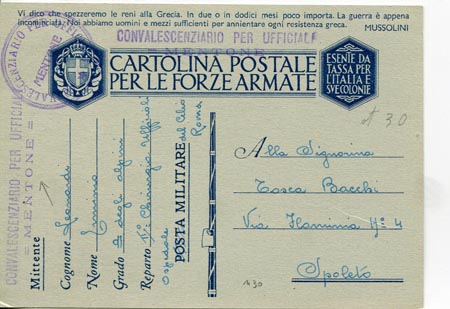 Vi dico che spezzeremo le reni alla Grecia. In due o in dodici mesi poco importa. La guerra è appena
incominciata. Noi abbiamo uomini e mezzi sufficienti per annientare ogni resistenza greca.
MUSSOLINI
CONVALESCENZIARIO PER UFFICIALI
= MENTONE =
CARTOLINA POSTALE
PER LE FORZE ARMATE
ESENTE DA
TASSA PER
L'ITALIA E
SVE COLONIE
MENTONE
CONVALESCENZIARIO PER UFFICIALI
= MENTONE =
Mittente
Cognome Leonardi
Nome
Grado degli alpini
Reparto Chirurgia Ufficiali
Ospedale
POSTA MILITARE del Celio
Roma
30
Alla Signorina
Tosca Bacchi
Via Flaminia N° 4
Spoleto
430